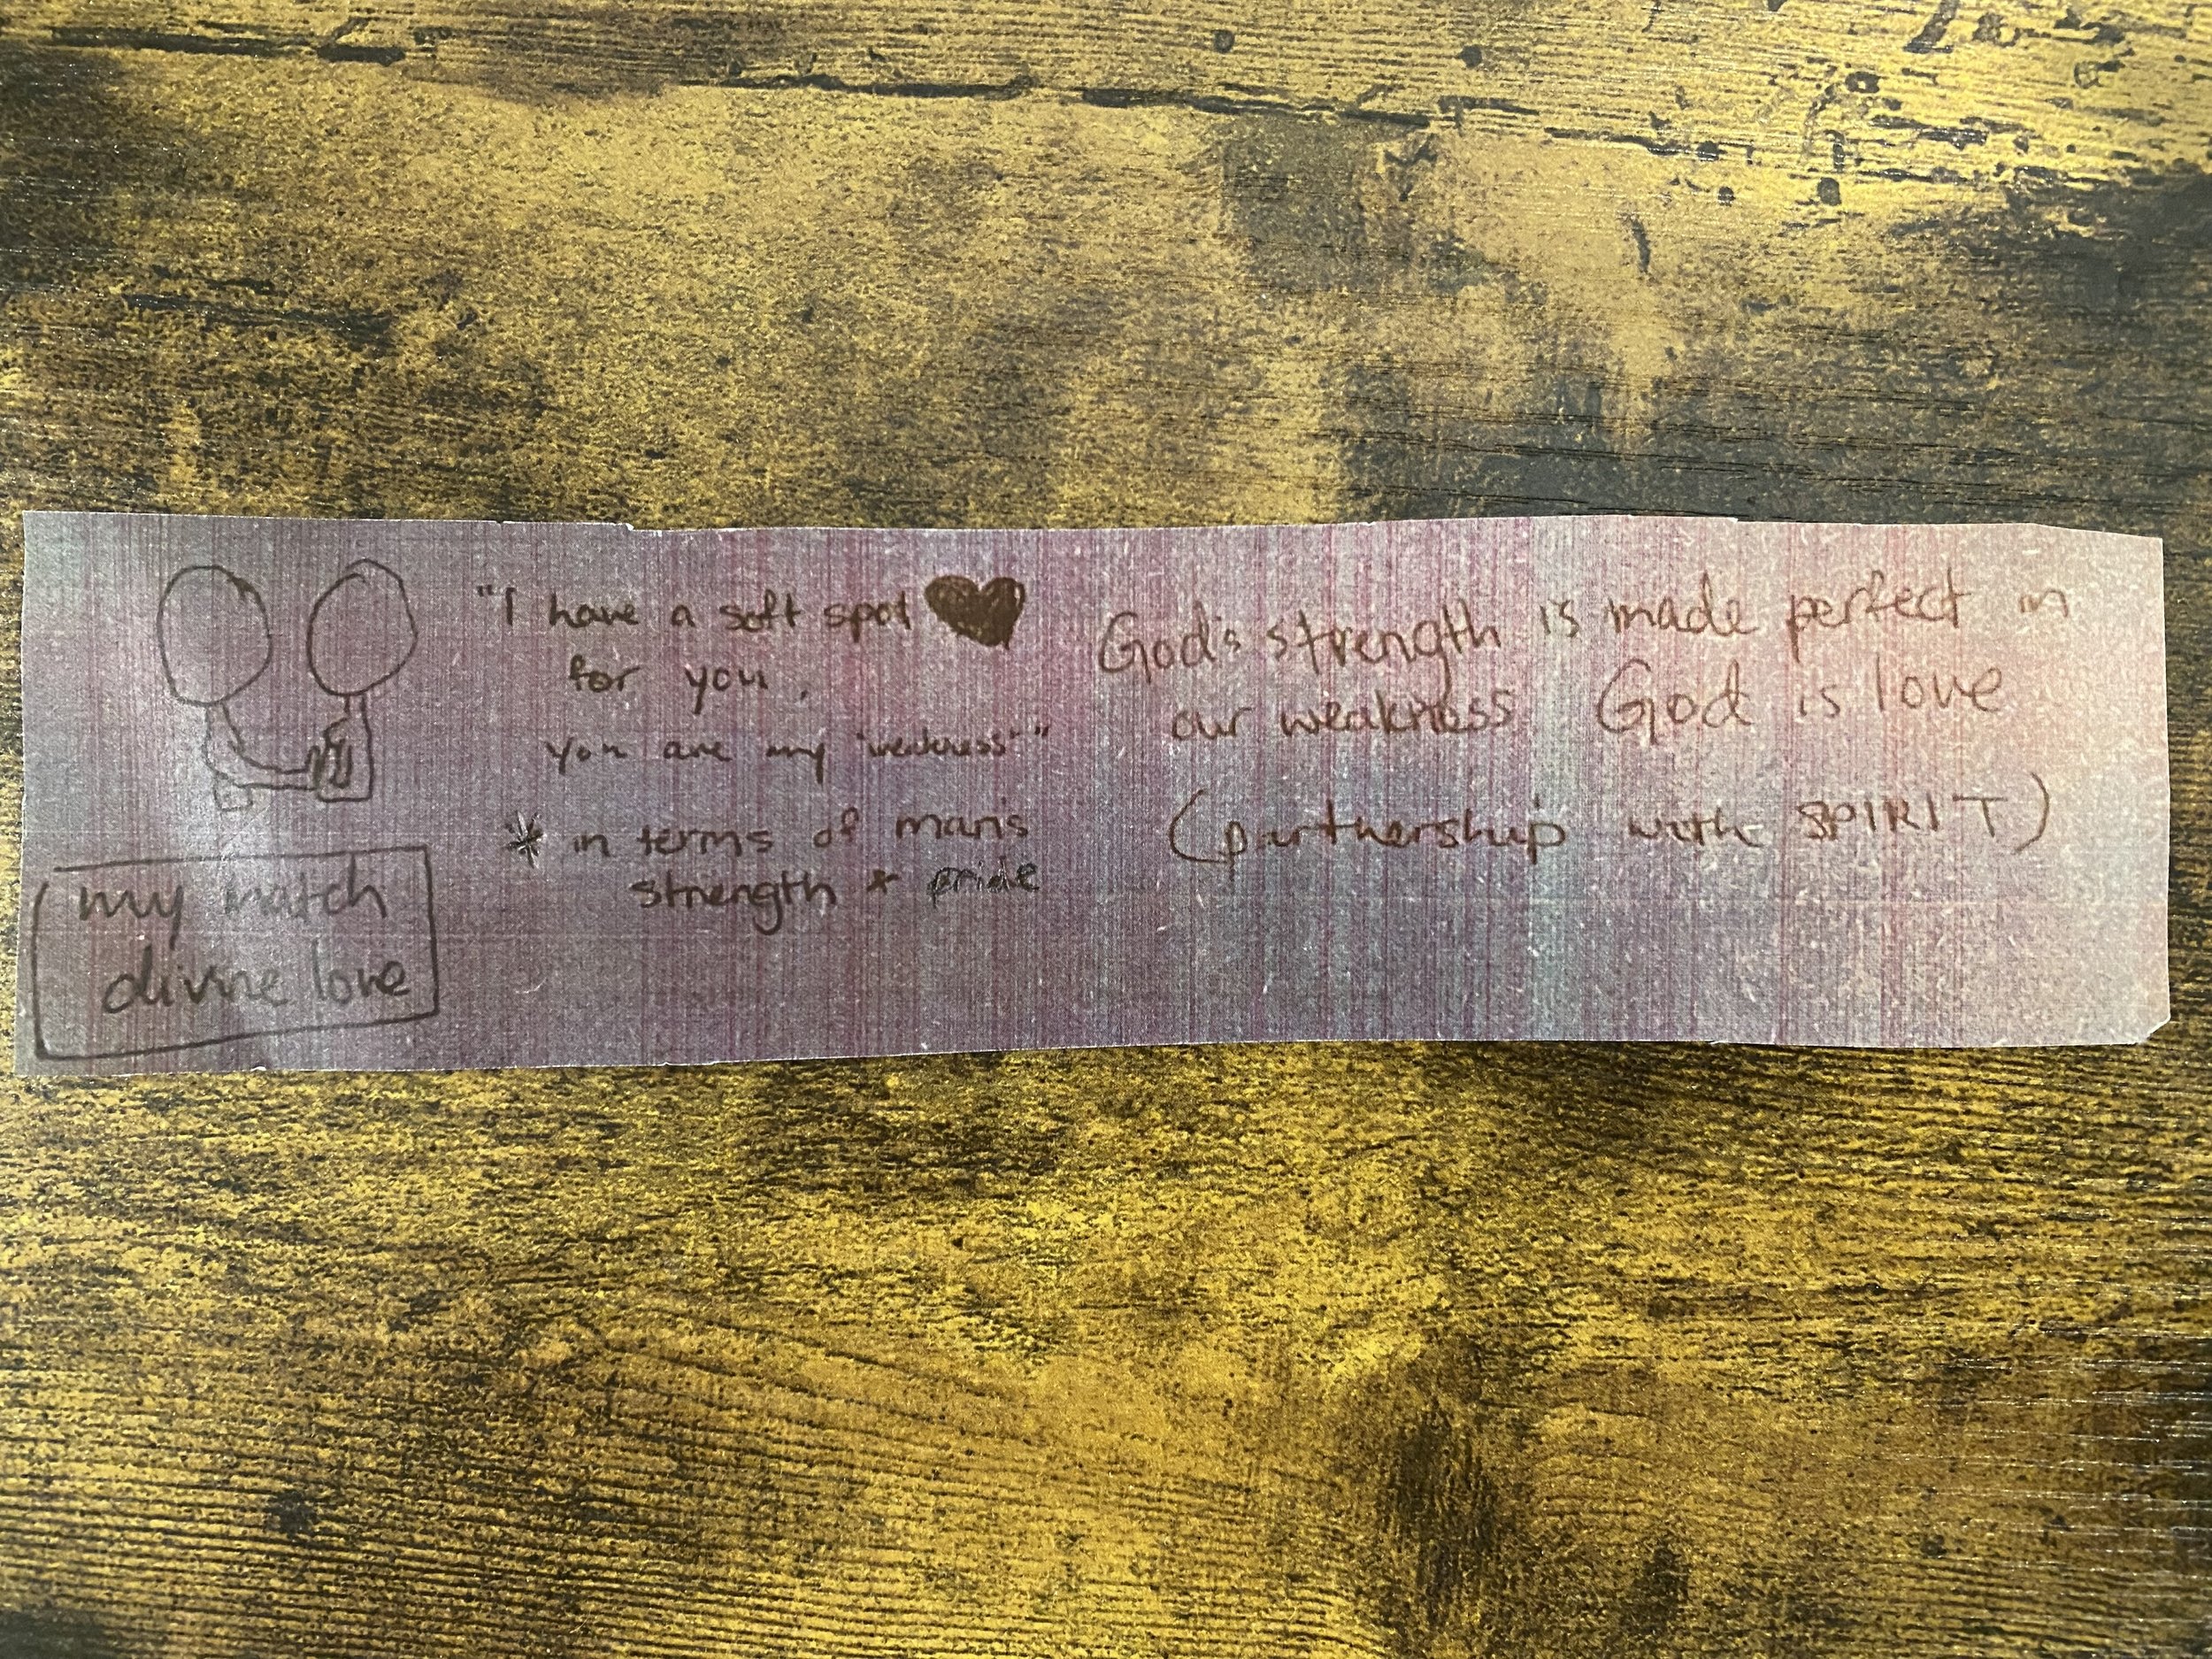 "I have a soft spot ♥
for you,
you are my "weakness""
* in terms of man's
strength + pride
my match
divine love
God's strength is made perfect in
our weakness God is love
(partnership with SPIRIT)